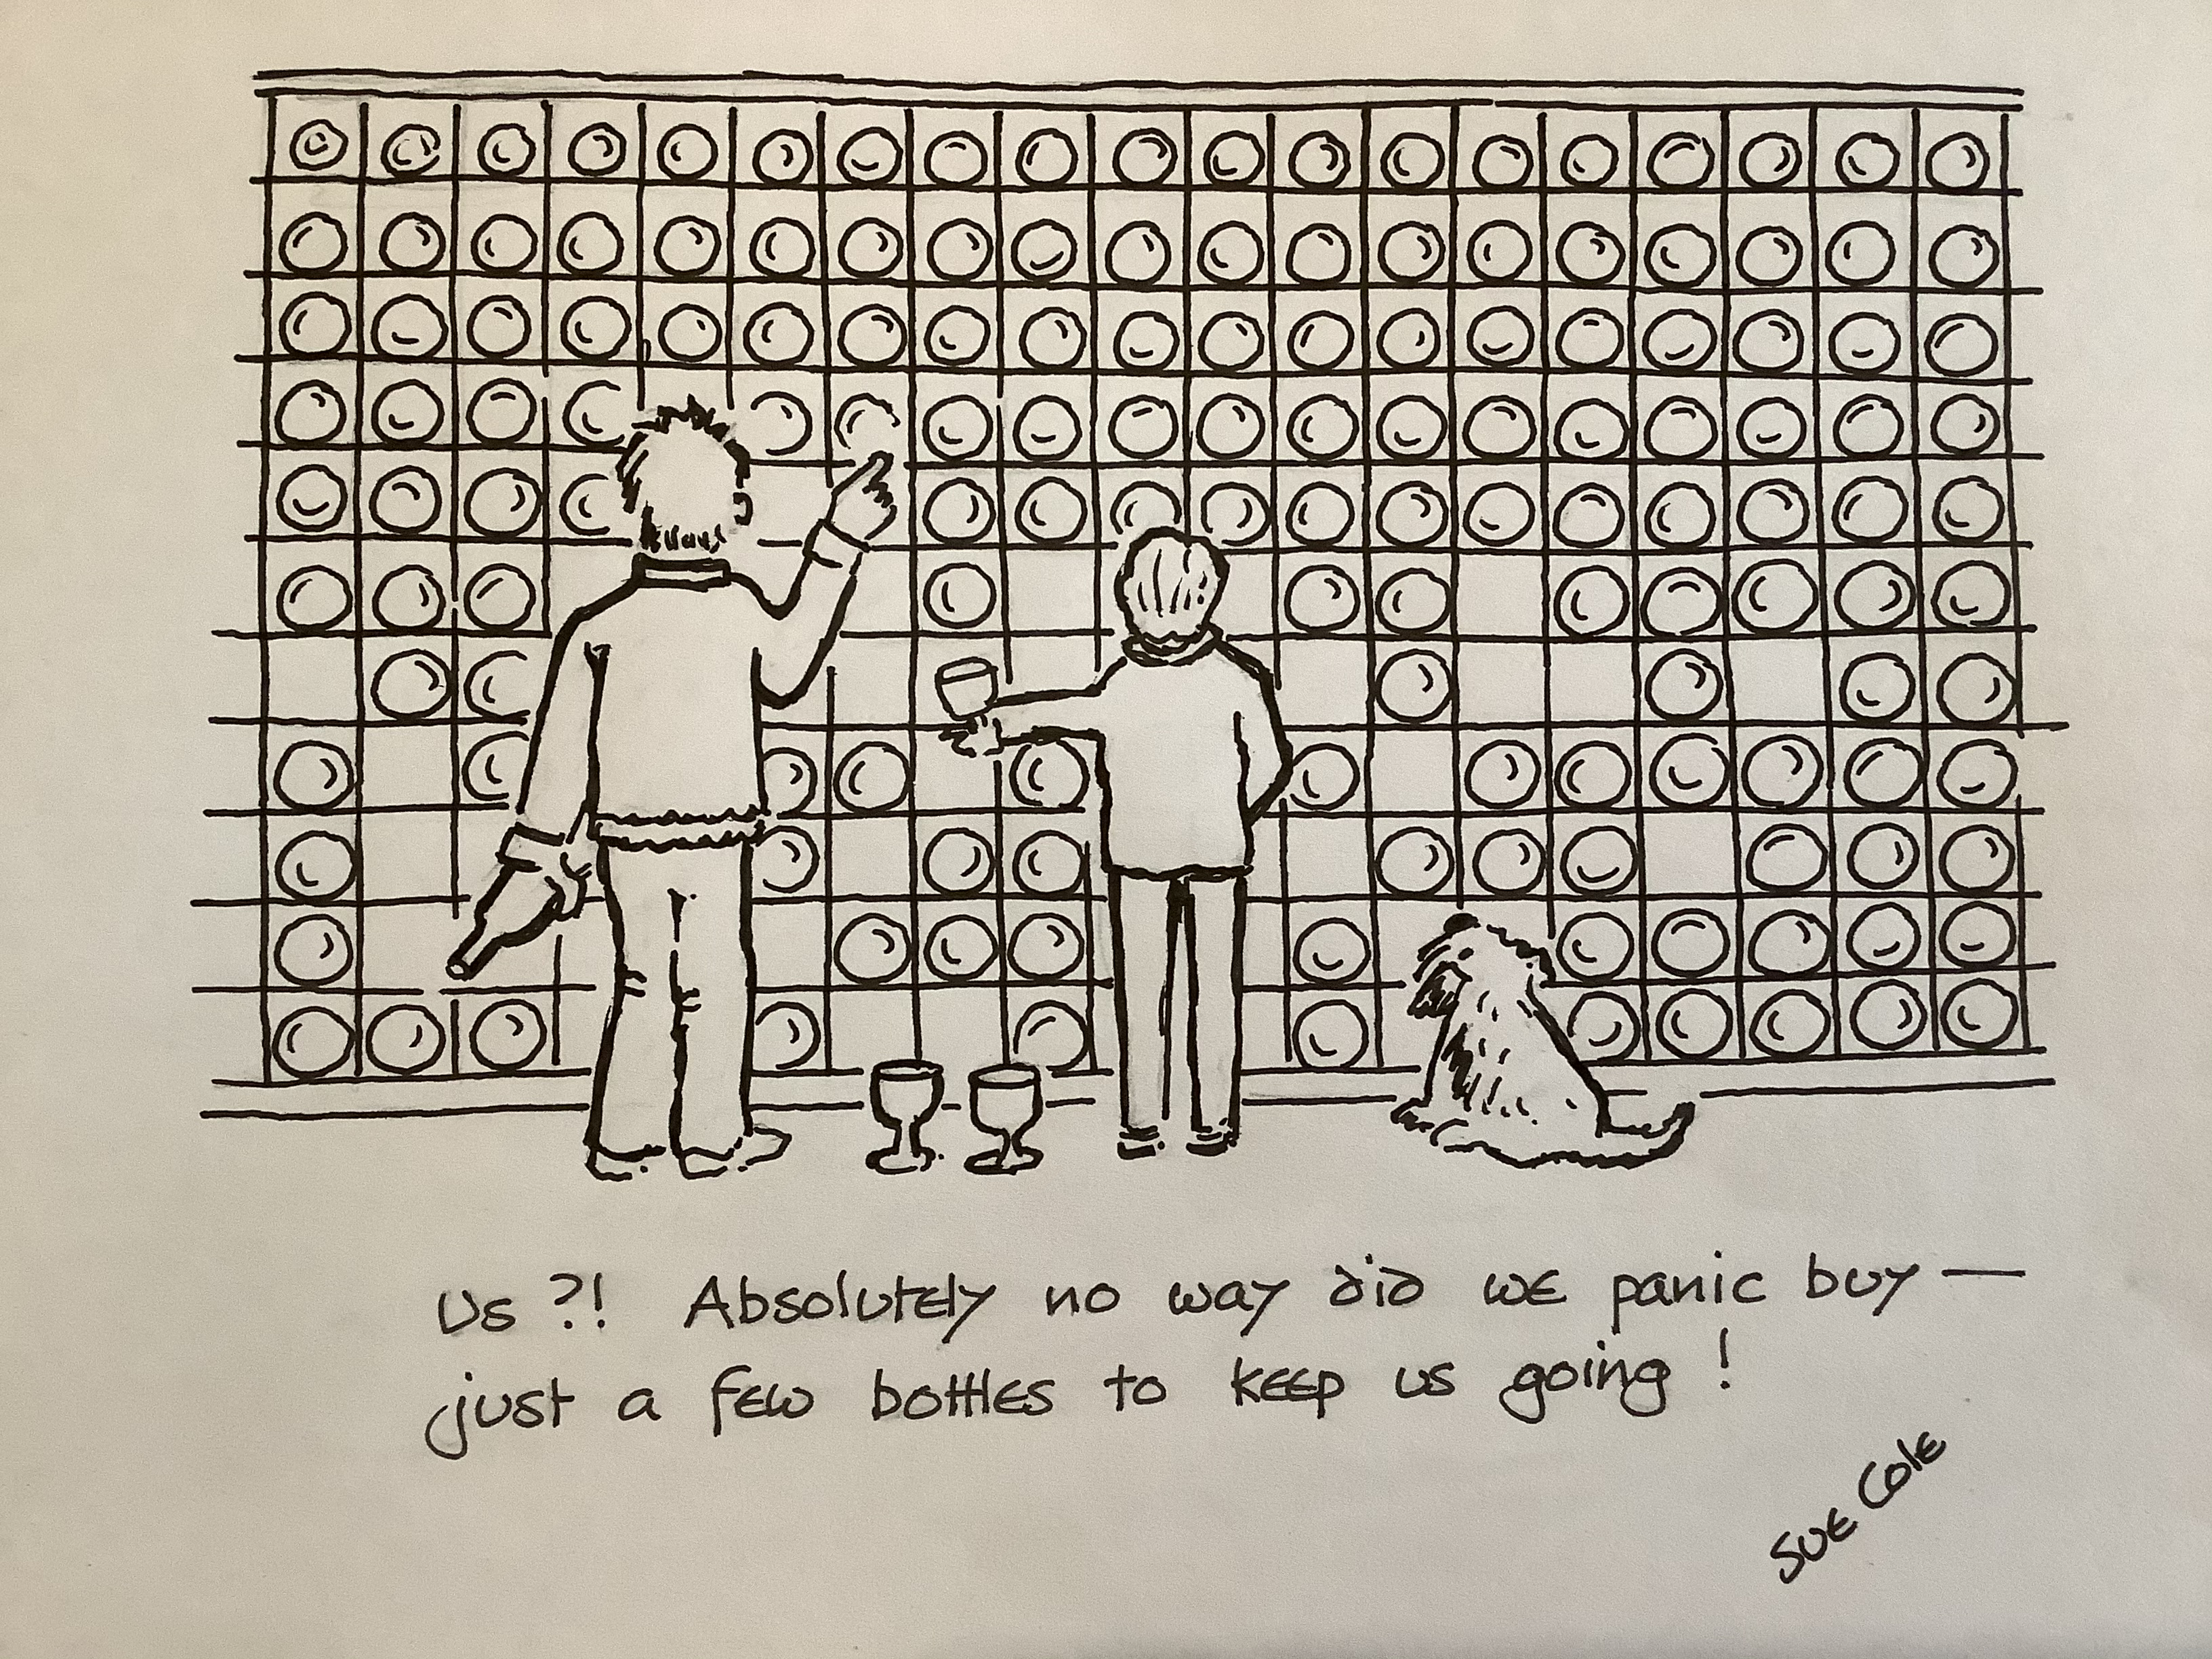 Us ?! Absolutely no way did we panic buy —
just a few bottles to keep us going !
Sue Cole